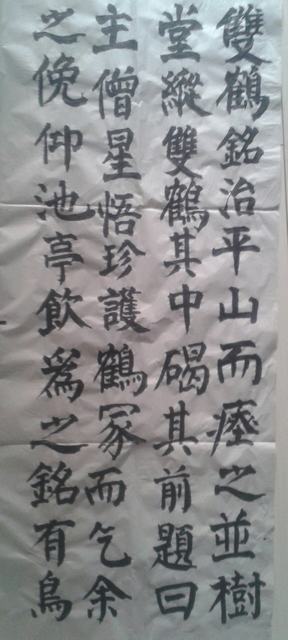 雙鶴銘治平山而瘞之並樹
堂縱雙鶴其中碣其前題曰
主僧星悟珍護鶴冢而乞余
之俛仰池亭飲爲之銘有鳥